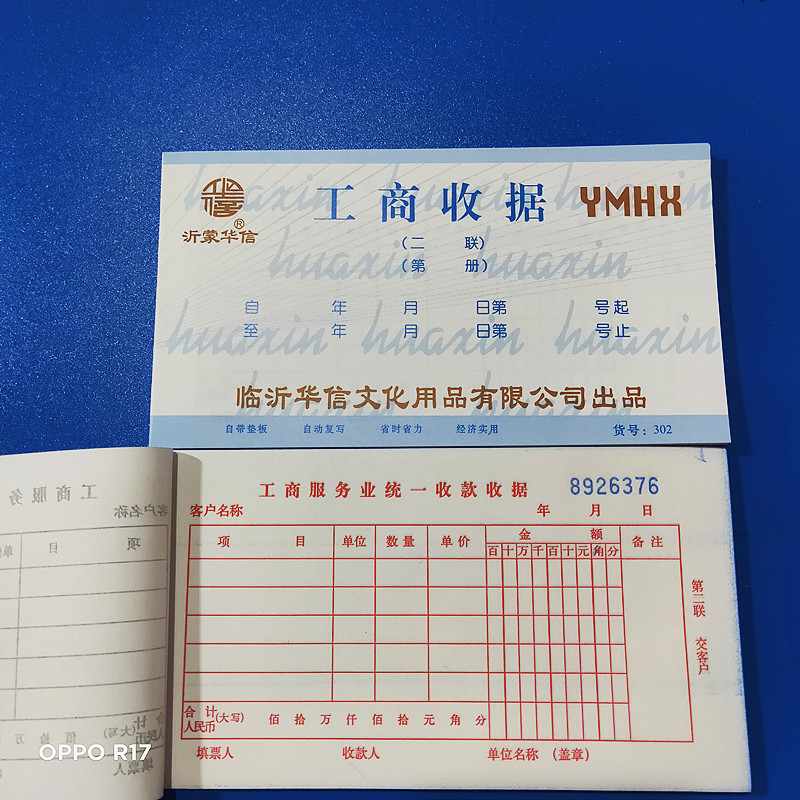 huaxin huaxin huaxin
工商收据 YMHX
沂蒙华信®
(二 联)
(第 册)
huaxin huaxin
自 年 月 日第 号起
至 年 月 日第 号止
huaxin huaxin huaxin
临沂华信文化用品有限公司出品
自带垫板 自动复写 省时省力 经济实用 货号:302
工商服务业统一收款收据 8926376
客户名称 年 月 日
项 目 单位 数量 单价 金 额 备注
百 十 万 千 百 十 元 角 分
第二联 交客户
合 计
人民币 (大写) 佰 拾 万 仟 佰 拾 元 角 分
填票人 收款人 单位名称 (盖章)
工商服务
客户名称
项 目 单
合 计
人民币 (大写) 佰 拾 万
填票人
OPPO R17